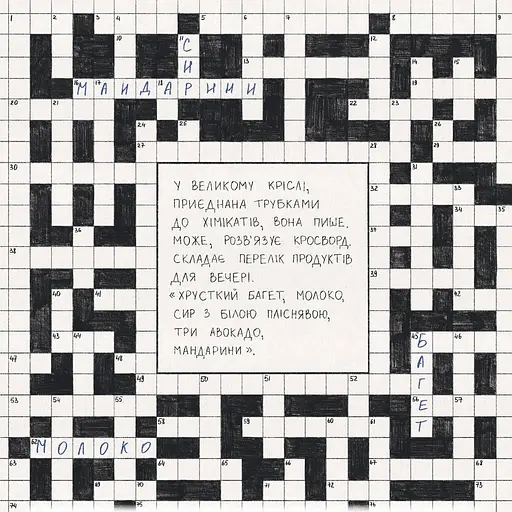 1 2 3 4 5 6 7 8 9
10 11 СИР 12
13 14 15
16 17 18 МАНДАРИНИ
20 21 22 23
24 25 26
27 28 29
30 31
У ВЕЛИКОМУ КРІСЛІ,
ПРИЄДНАНА ТРУБКАМИ
ДО ХІМІКАТІВ, ВОНА ПИШЕ.
МОЖЕ, РОЗВ'ЯЗУЄ КРОСВОРД.
СКЛАДАЄ ПЕРЕЛІК ПРОДУКТІВ
ДЛЯ ВЕЧЕРІ.
«ХРУСТКИЙ БАГЕТ, МОЛОКО,
СИР З БІЛОЮ ПЛІСНЯВОЮ,
ТРИ АВОКАДО,
МАНДАРИНИ».
32 33
34 35
36
38 39
40 41 42
43 44 45 46
БАГЕТ
47 48
49 50 51 52
53 54 55 56 57
58 59 60 61
62 МОЛОКО
63 64 65 66 67 68
69 70 71 72
74 75 76